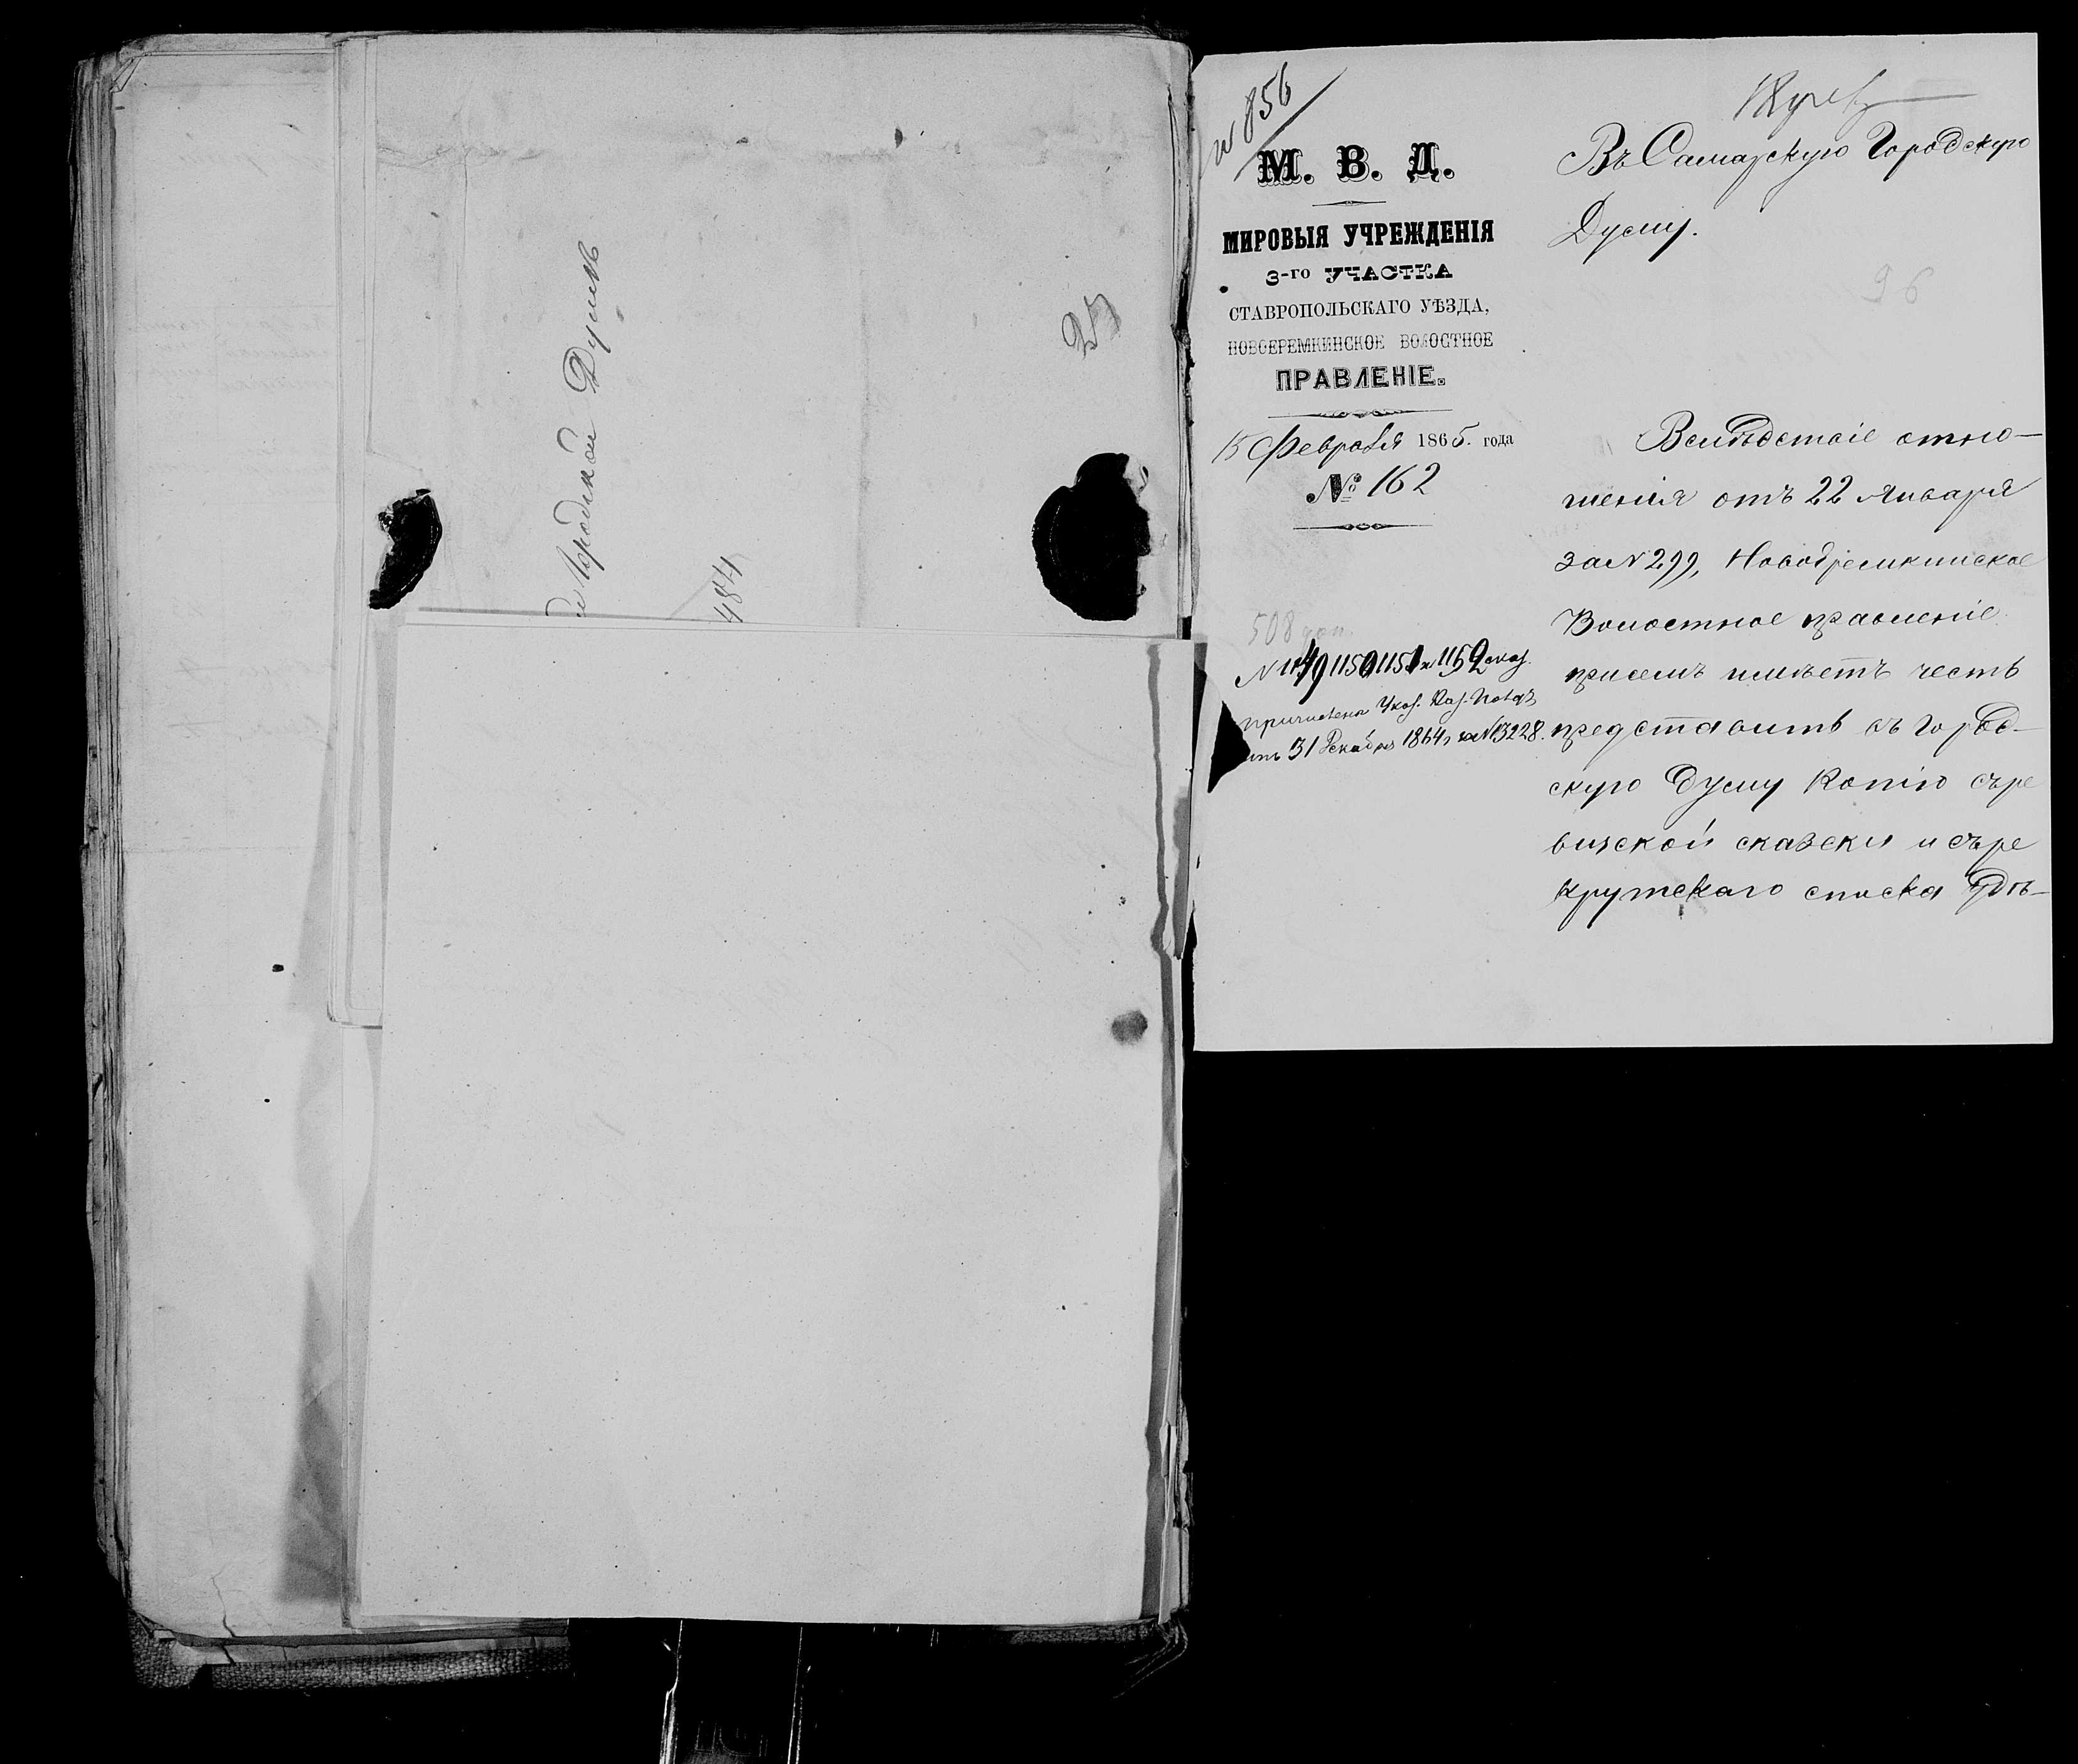 Городской Думѣ
484
25
N 856
М. В. Д.
МИРОВЫЯ УЧРЕЖДЕНІЯ
3-го УЧАСТКА
СТАВРОПОЛЬСКАГО УѢЗДА,
НОВОЕРЕМКИНСКОЕ ВОЛОСТНОЕ
ПРАВЛЕНІЕ.
15 Февраля 1865. года
№ 162
508
N 1149 1150 1151 и 1152 сказ.
причислены Указ. Каз. Палаты
отъ 31 Декабря 1864 г за N 13228.
Въ Самарскую Городскую
Думу.
96
Вслѣдствіе отно-
шенія отъ 22 Января
за N 299, Новоеремкинское
Волостное правленіе
присемъ имѣетъ честь
представить въ Город-
скую Думу Копію съ ре
визской сказски и съ ре
крутскаго списка